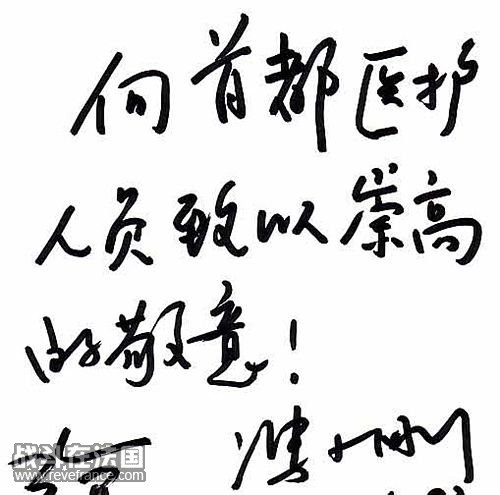 向首都医护
人员致以崇高
的敬意！
战斗在法国
www.revefrance.com